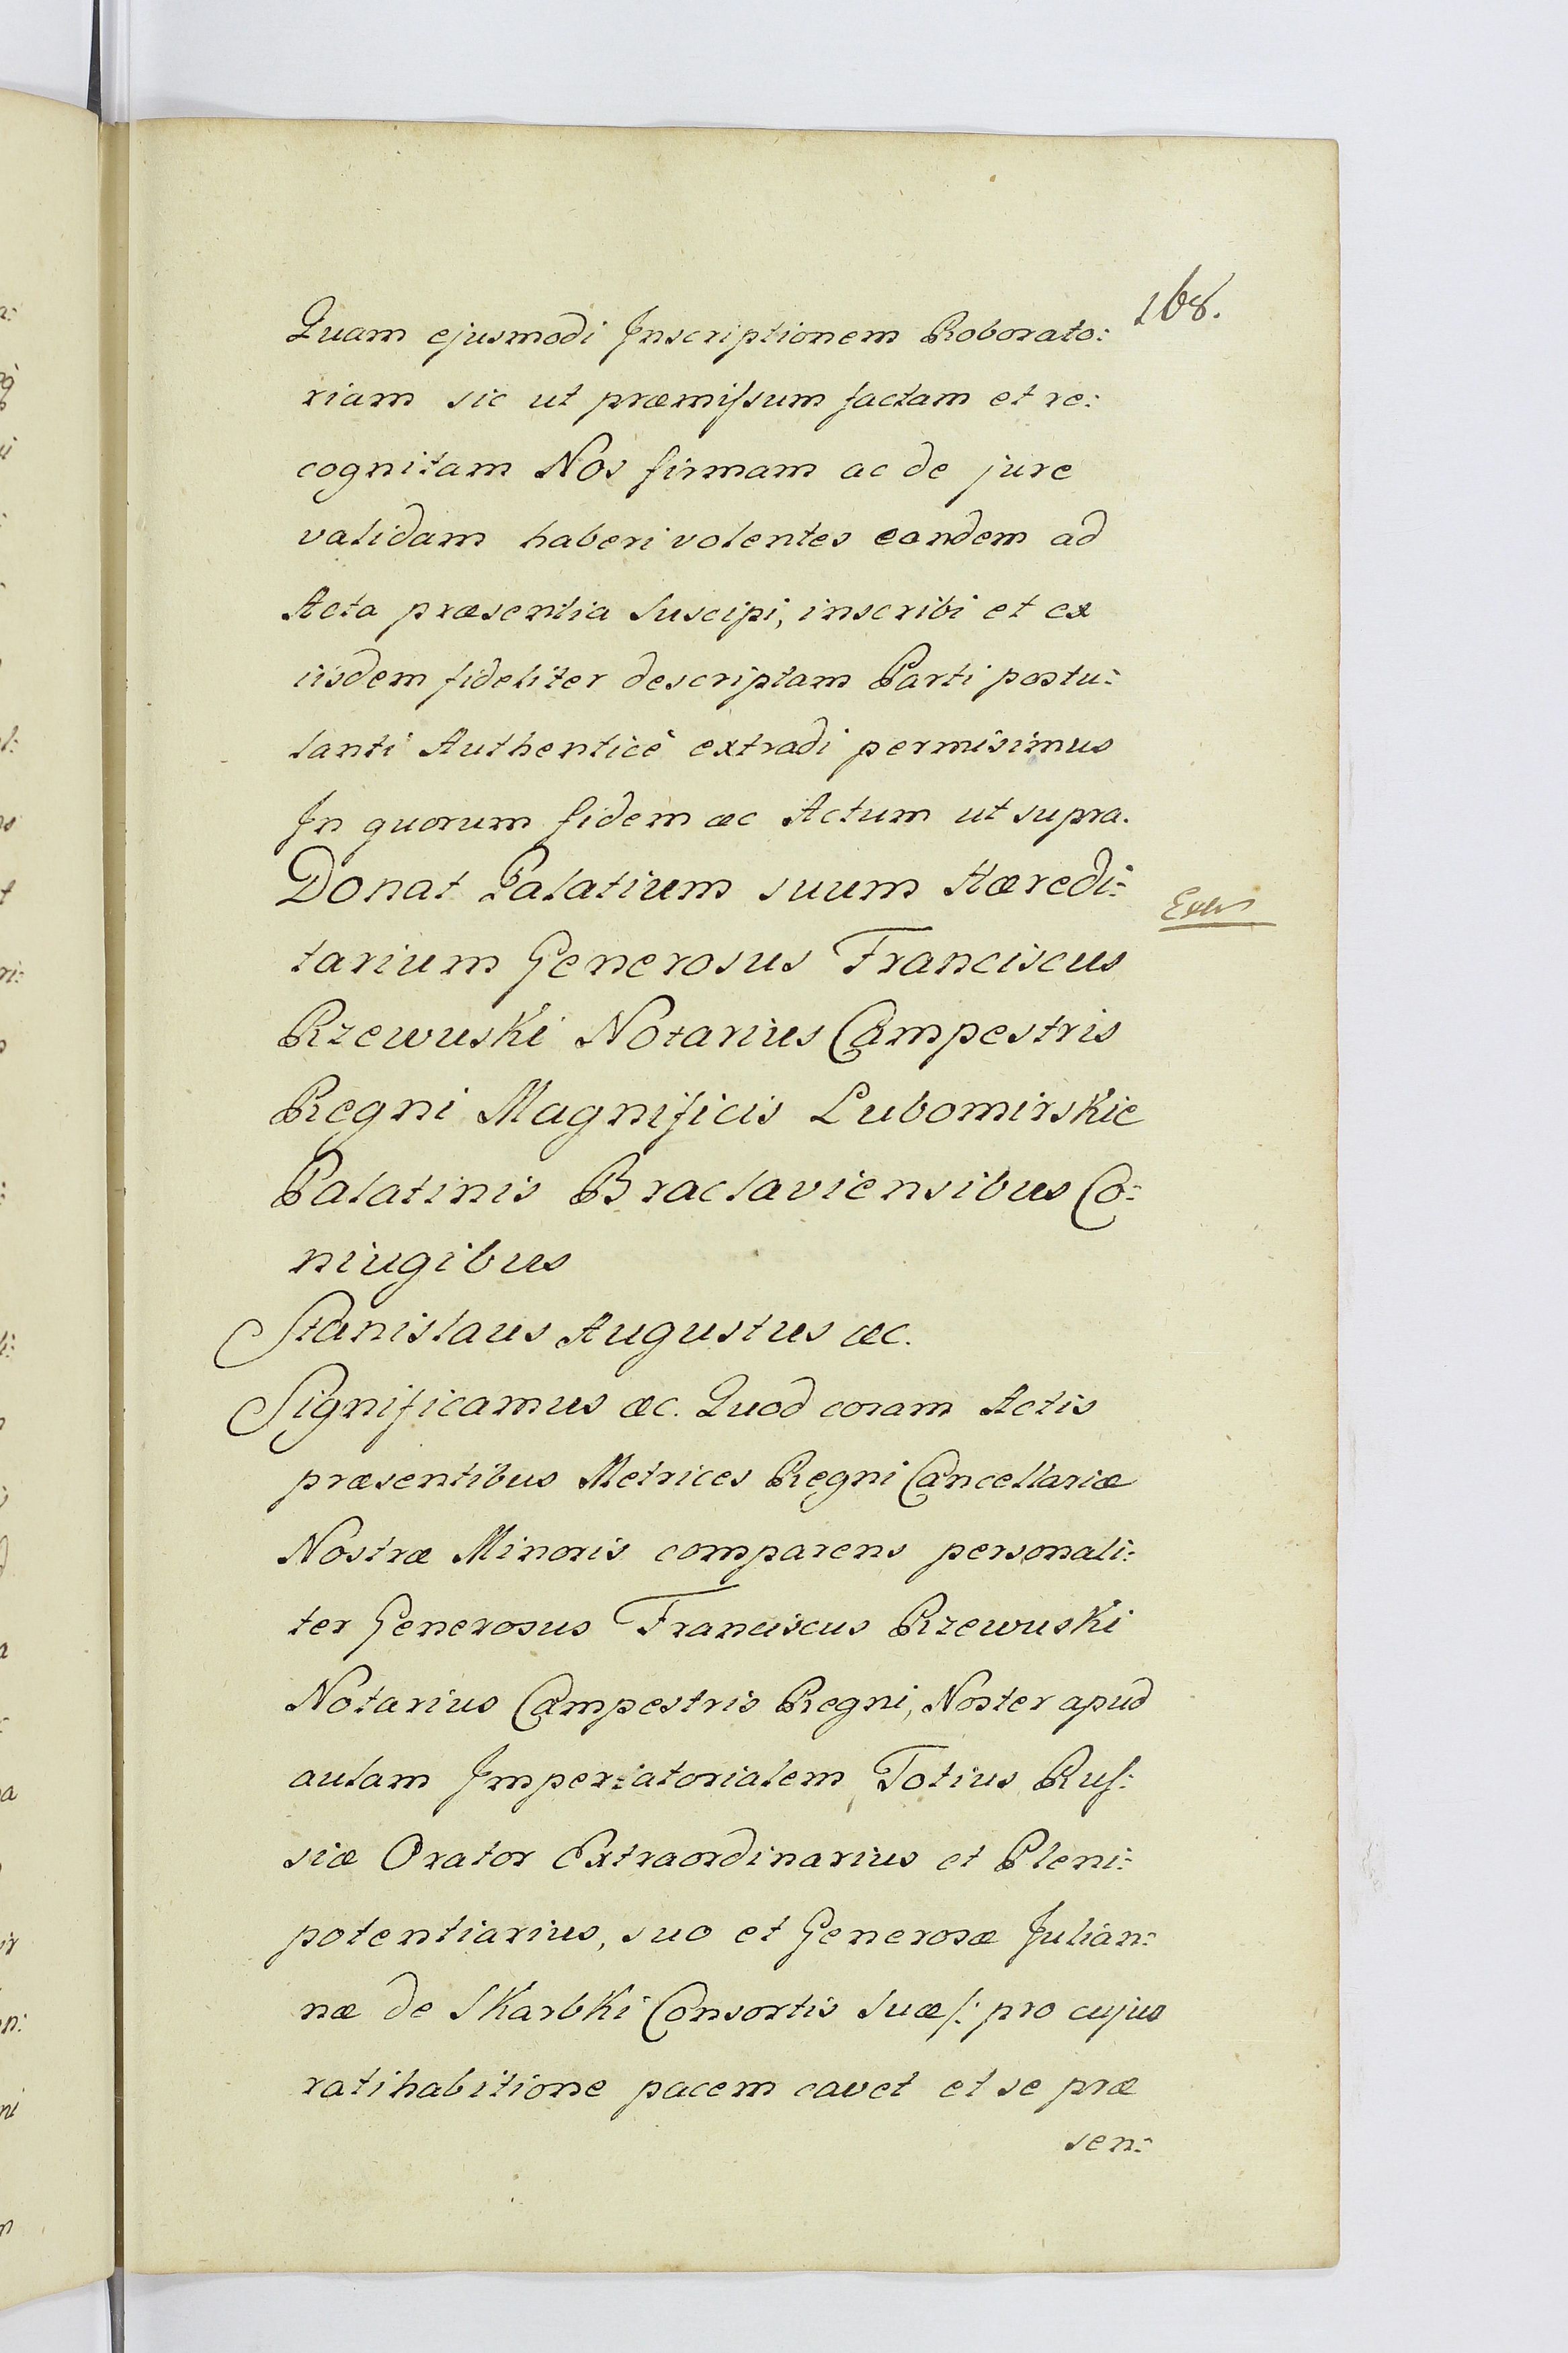 168.
Quam ejusmodi Inscriptionem Roborato:
riam sic ut præmiſsum factam et re:
cognitam Nos firmam ac de jure
validam haberi volentes eandem ad
Acta præsentia suscipi, inscribi et ex
iisdem fideliter descriptam Parti postu:
lanti Authenticè extradi permisimus
In quorum fidem æc Actum ut supra.
Donat Palatium suum Hæredi:
tarium Generosus Franciscus
Rzewuski Notarius Campestris
Regni Magnificis Lubomirskie
Palatinis Braclaviensibus Co:
niugibus
Stanislaus Augustus æc.
Significamus æc. Quod coram Actis
præsentibus Metrices Regni Cancellariæ
Nostræ Minoris comparens personali:
ter Generosus Franciscus Rzewuski
Notarius Campestris Regni, Noster apud
aulam Imperatorialem Totius Ruſ:
siæ Orator Extraordinarius et Pleni:
potentiarius, suo et Generosæ Julian:
næ de Skarbki Consortis suæ /: pro cujus
ratihabitione pacem cavet et se præ
sen: